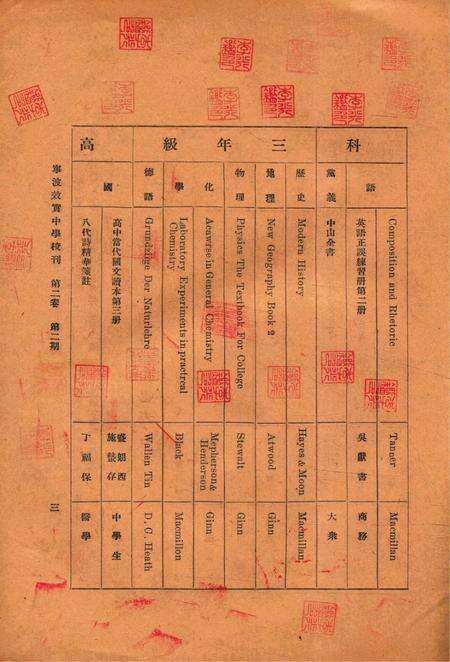 科
三年級
高
語
Composition and Rhetoric Tanner Macmillan
英語正誤練習册第二册 吳獻書 商務
黨義 中山全書 大衆
歷史 Modern History Hayes & Moon Macmillan
地理 New Geography Book 2 Atwood Ginn
物理 Physics The Textbook For College Stewalt Ginn
化學
Acawrse in General Chemistry Mepherson & Henderson Ginn
Laboratory Experiments in practreal Chemistry Black Macmillon
德語 Grundzüge Der Naturlehre Wallen Tin D. C. Heath
國
高中當代國文讀本第三册 盛朗西 施蟄存 中學生
八代詩精華箋註 丁福保 醫學
寧波效實中學校刊 第二卷 第二期 三